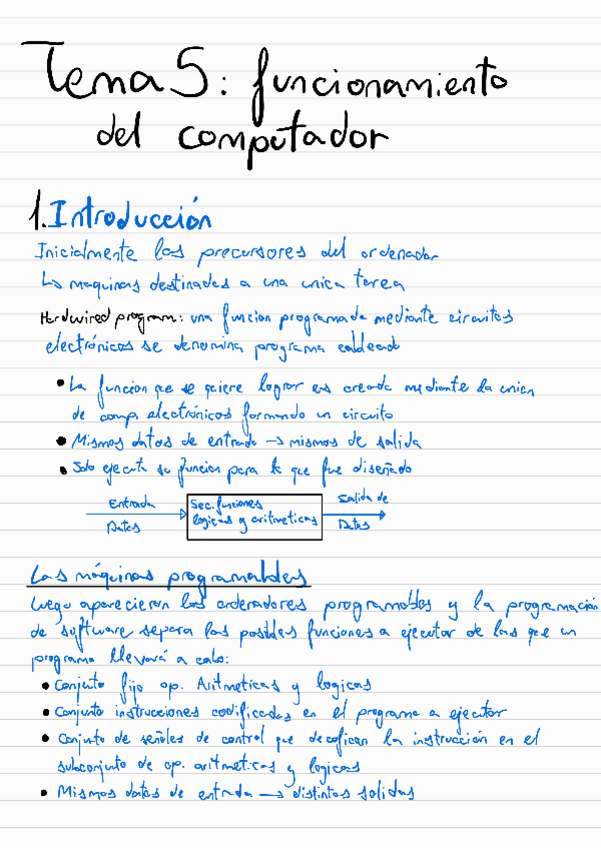 Tema 5: funcionamiento
del computador
1. Introducción
Inicialmente los precursores del ordenador
↳ maquinas destinadas a una unica tarea
Hardwired program: una funcion programada mediante circuitos
electrónicos se denomina programa cableado
• La funcion que se quiere lograr es creada mediante la union
de comp. electrónicos formando un circuito
• Mismos datos de entrada → mismos de salida
• Solo ejecuta su funcion para la que fue diseñado
Entrada
Datos
Sec. funciones
logicas y aritmeticas
Salida de
Datos
Las máquinas programables
Luego aparecieron los ordenadores programables y la programación
de software separa las posibles funciones a ejecutar de las que un
programa llevará a cabo:
• Conjunto fijo op. Aritmeticas y logicas
• Conjunto instrucciones codificadas en el programa a ejecutar
• Conjunto de señales de control que decofican la instrucción en el
subconjunto de op. aritmeticas y logicas
• Mismos datos de entrada → distintos salidas